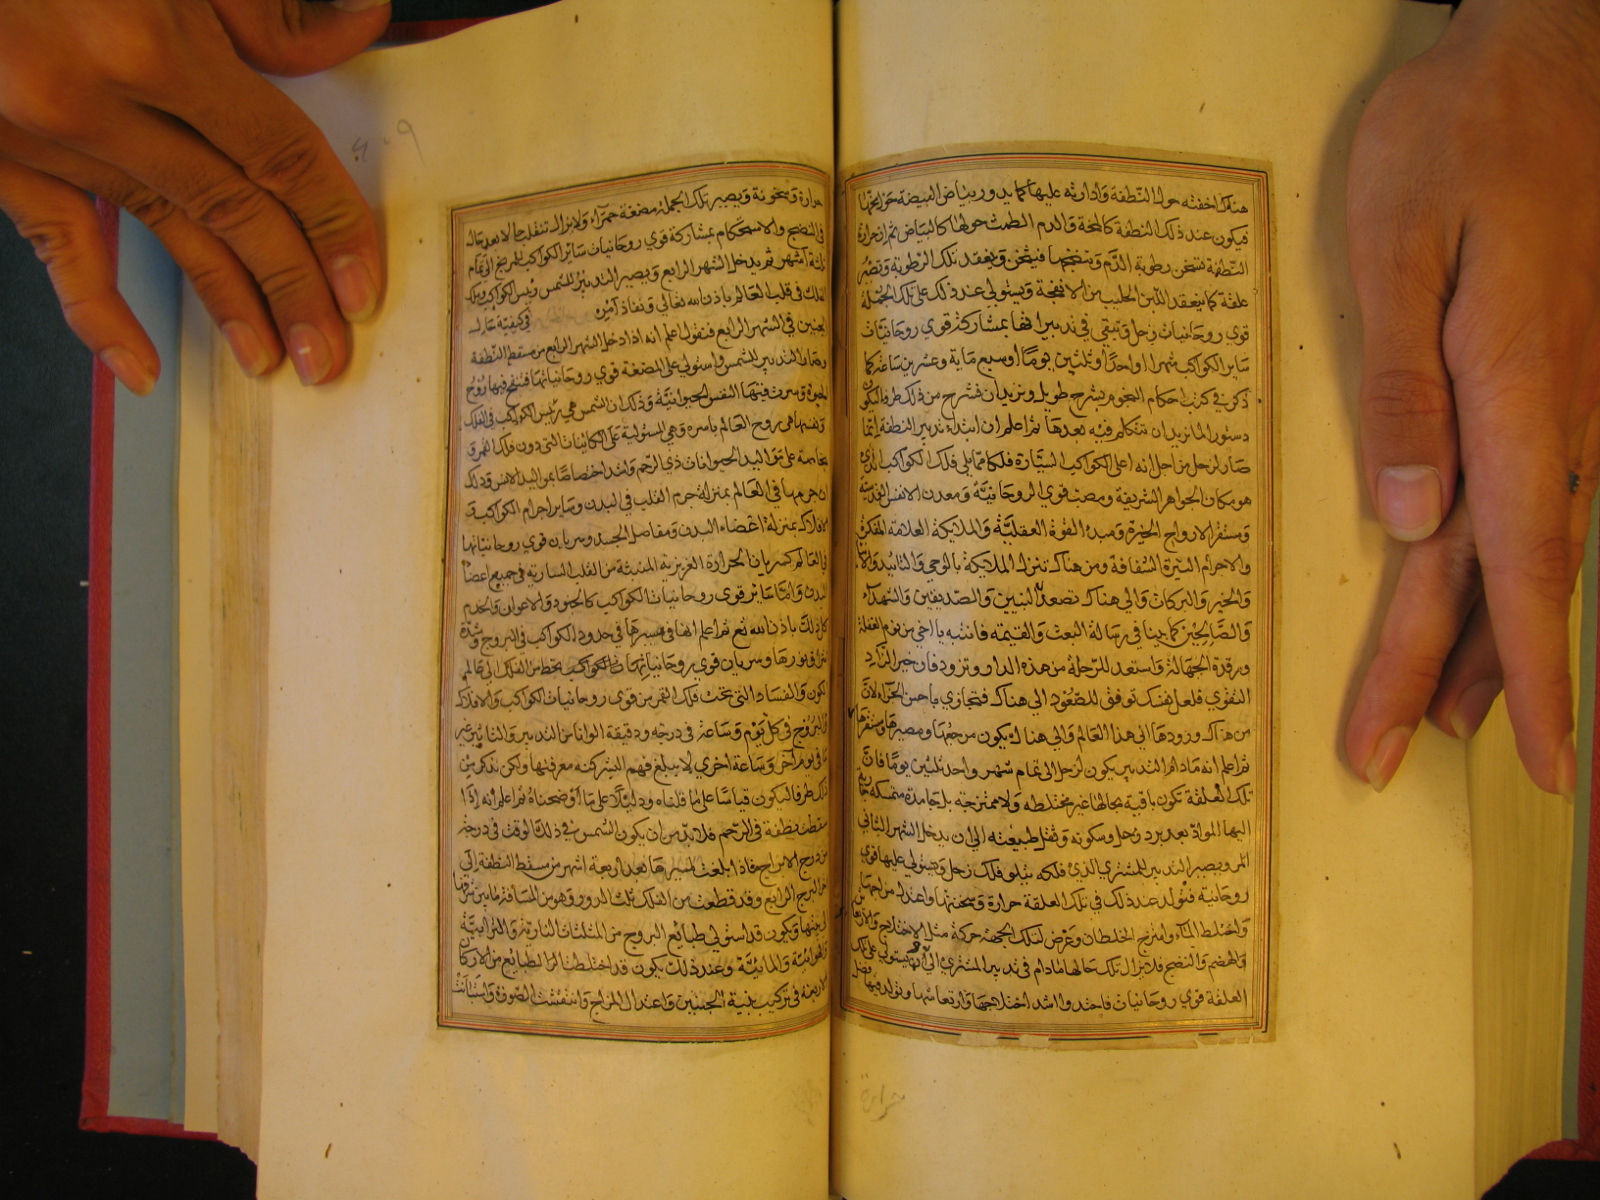 هناك احفته حول النطفة وادارته عليها كما يدور بياض البيضة حول محها
فيكون عند ذلك النطفة كالمحة والدم الطمث حولها كالبياض ثم ان حرارة
النطفة تسخن رطوبة الدم وتنضجها فيثخن وينعقد تلك الرطوبة وتصير
علقة كما ينعقد اللبن الحليب من الانفحة ويستولي عند ذلك على تلك الجملة
قوي روحانيات زحل وتبقي في تدبيرا فها بمشاركة قوي روحانيات
ساير الكواكب شهرا واحدا وثلثين يوما وسبع ماية وعشرين ساعة كما
ذكر في كتب احكام النجوم بشرح طويل ونريد ان نشرح من ذلك طرفا ليكون
دستورا لما نريد ان نتكلم فيه بعدها ثم اعلم ان ابتداء تدبير النطفة انما
صار لزحل من اجل انه اعلى الكواكب السيارة فلكا مما يلي فلك الكواكب الذي
هو مكان الجواهر الشريفة ومصب قوي الروحانية ومعدن الانفس القدسية
ومستقر الارواح الخيرة ومبدء القوة العقلية والملايكة العلامة المفكرة
والاجرام النيرة الشفافة ومن هناك تنزل الملايكة بالوحي والتائيد والانباء
والخير والبركات والي هناك تصعد النبيين والصديقين والشهداء
والصالحين كما بينا في رسالة البعث والقيمة فانتبه يا اخي من نوم الغفلة
ورقدة الجهالة واستعد للرحلة من هذه الدار وتزود فان خير الزاد
التقوي فلعل نفسك توفق للصعود الي هناك فتجازي باحسن الجزاء لان
من هناك ورودها الي هذا العالم والي هناك يكون مرجعها ومصيرها ومستقرها
ثم اعلم انه مادام التدبير يكون لزحل الى تمام شهر واحد ثلثين يوما فان
تلك العلقة تكون باقية بحالها غير مختلطة ولا ممتزجة بل جامدة متمسكة
اليها المواد بعد برد زحل وسكونه وثقل طبيعته الي ان يدخل الشهر الثاني
ويصير التدبير للمشتري الذي فلكه يتلو فلك زحل ويستولي عليها قوي
روحانية فتولد عند ذلك في تلك العلقة حرارة وسخنتها واعتدل مزاجها
واختلط الماء وامتزج الخلطان وعرض لتلك الجهة حركة مثل الاختلاج والارتعاش
والهضم والنضج فلا يزال تلك حالها مادام في تدبير المشتري الي ان يستولي على تلك
العلقة قوي روحانيات فاحتد واشتد اختلاجها وارتعاشها وتولد فيها فضل
حرارة
٤٠٩
حرارة وسخونة ويصير تلك الجملة مضغة حمراء ولا يزال تنقلب حالا بعد حال
في النضج والاستحكام بمشاركة قوي روحانيات ساير الكواكب للمريخ الي تمام
ثلثة اشهر ثم يدخل الشهر الرابع ويصير التدبير للشمس رئيس الكواكب وملك
الفلك في قلب العالم باذن الله تعالي ونفاذ امره في كيفية حال
الجنين في الشهر الرابع فنقول اعلم انه اذا دخل الشهر الرابع من مسقط النطفة
وصار التدبير للشمس واستولي على المضغة قوي روحانياتها فنفخ فيها روح
الحيوة وسرت فيها النفس الحيوانية وذلك ان الشمس هي رئيس الكواكب في الفلك
ونفسها هي روح العالم باسره وهي المستولية على الكاينات التي دون فلك القمر
بخاصة على مواليد الحيوانات ذي الرحم واشد اختصاصا بمواليد الانس وذلك
ان جرمها في العالم بمنزلة جرم القلب في البدن وساير اجرام الكواكب و
الافلاك بمنزلة اعضاء البدن ومفاصل الجسد وسريان قوي روحانياتها
في العالم كسريان الحرارة الغريزية المنبثة من القلب السارية في جميع اعضاء
البدن واما ساير قوي روحانيات الكواكب كالجنود والاعوان والخدم
كل ذلك باذن الله تع ثم اعلم انها في مسيرها في حدود الكواكب في البروج وشدة
اشراق نورها وسريان قوي روحانياتها والكواكب ينحط من الفلك الي عالم
الكون والفساد التي تحت فلك القمر من قوي روحانيات الكواكب والافلاك
والبروج في كل يوم وساعة في درجة ودقيقة الوانا من التدبير والتاثير غير
ما في يوم آخر وساعة اخري لا يبلغ فهم البشر كنه معرفتها ولكن نذكر من
ذلك طرفا ليكون قياسا على ما قلناه ودليلا على ما اوضحناه ثم اعلم انه اذا
سقطت نطفة في الرحم فلا بد من ان يكون الشمس في ذلك الوقت في درجة
من درج الابراج فاذا بلغت لمسيرها بعد اربعة اشهر من مسقط النطفة الي
اخر البرج الرابع وقد قطعت من الفلك ثلث الدور وهو من المسافة ما بين شرقها
الي بيتها ويكون قد استوفي طبايع البروج من المثلثات النارية والترابية
والهوائية والمائية وعند ذلك يكون قد اختلطت اثر الطبايع من الاركان
الاربعة في تركيب بنية الجنين واعتدال المزاج وانتقشت الصورة واستبانت